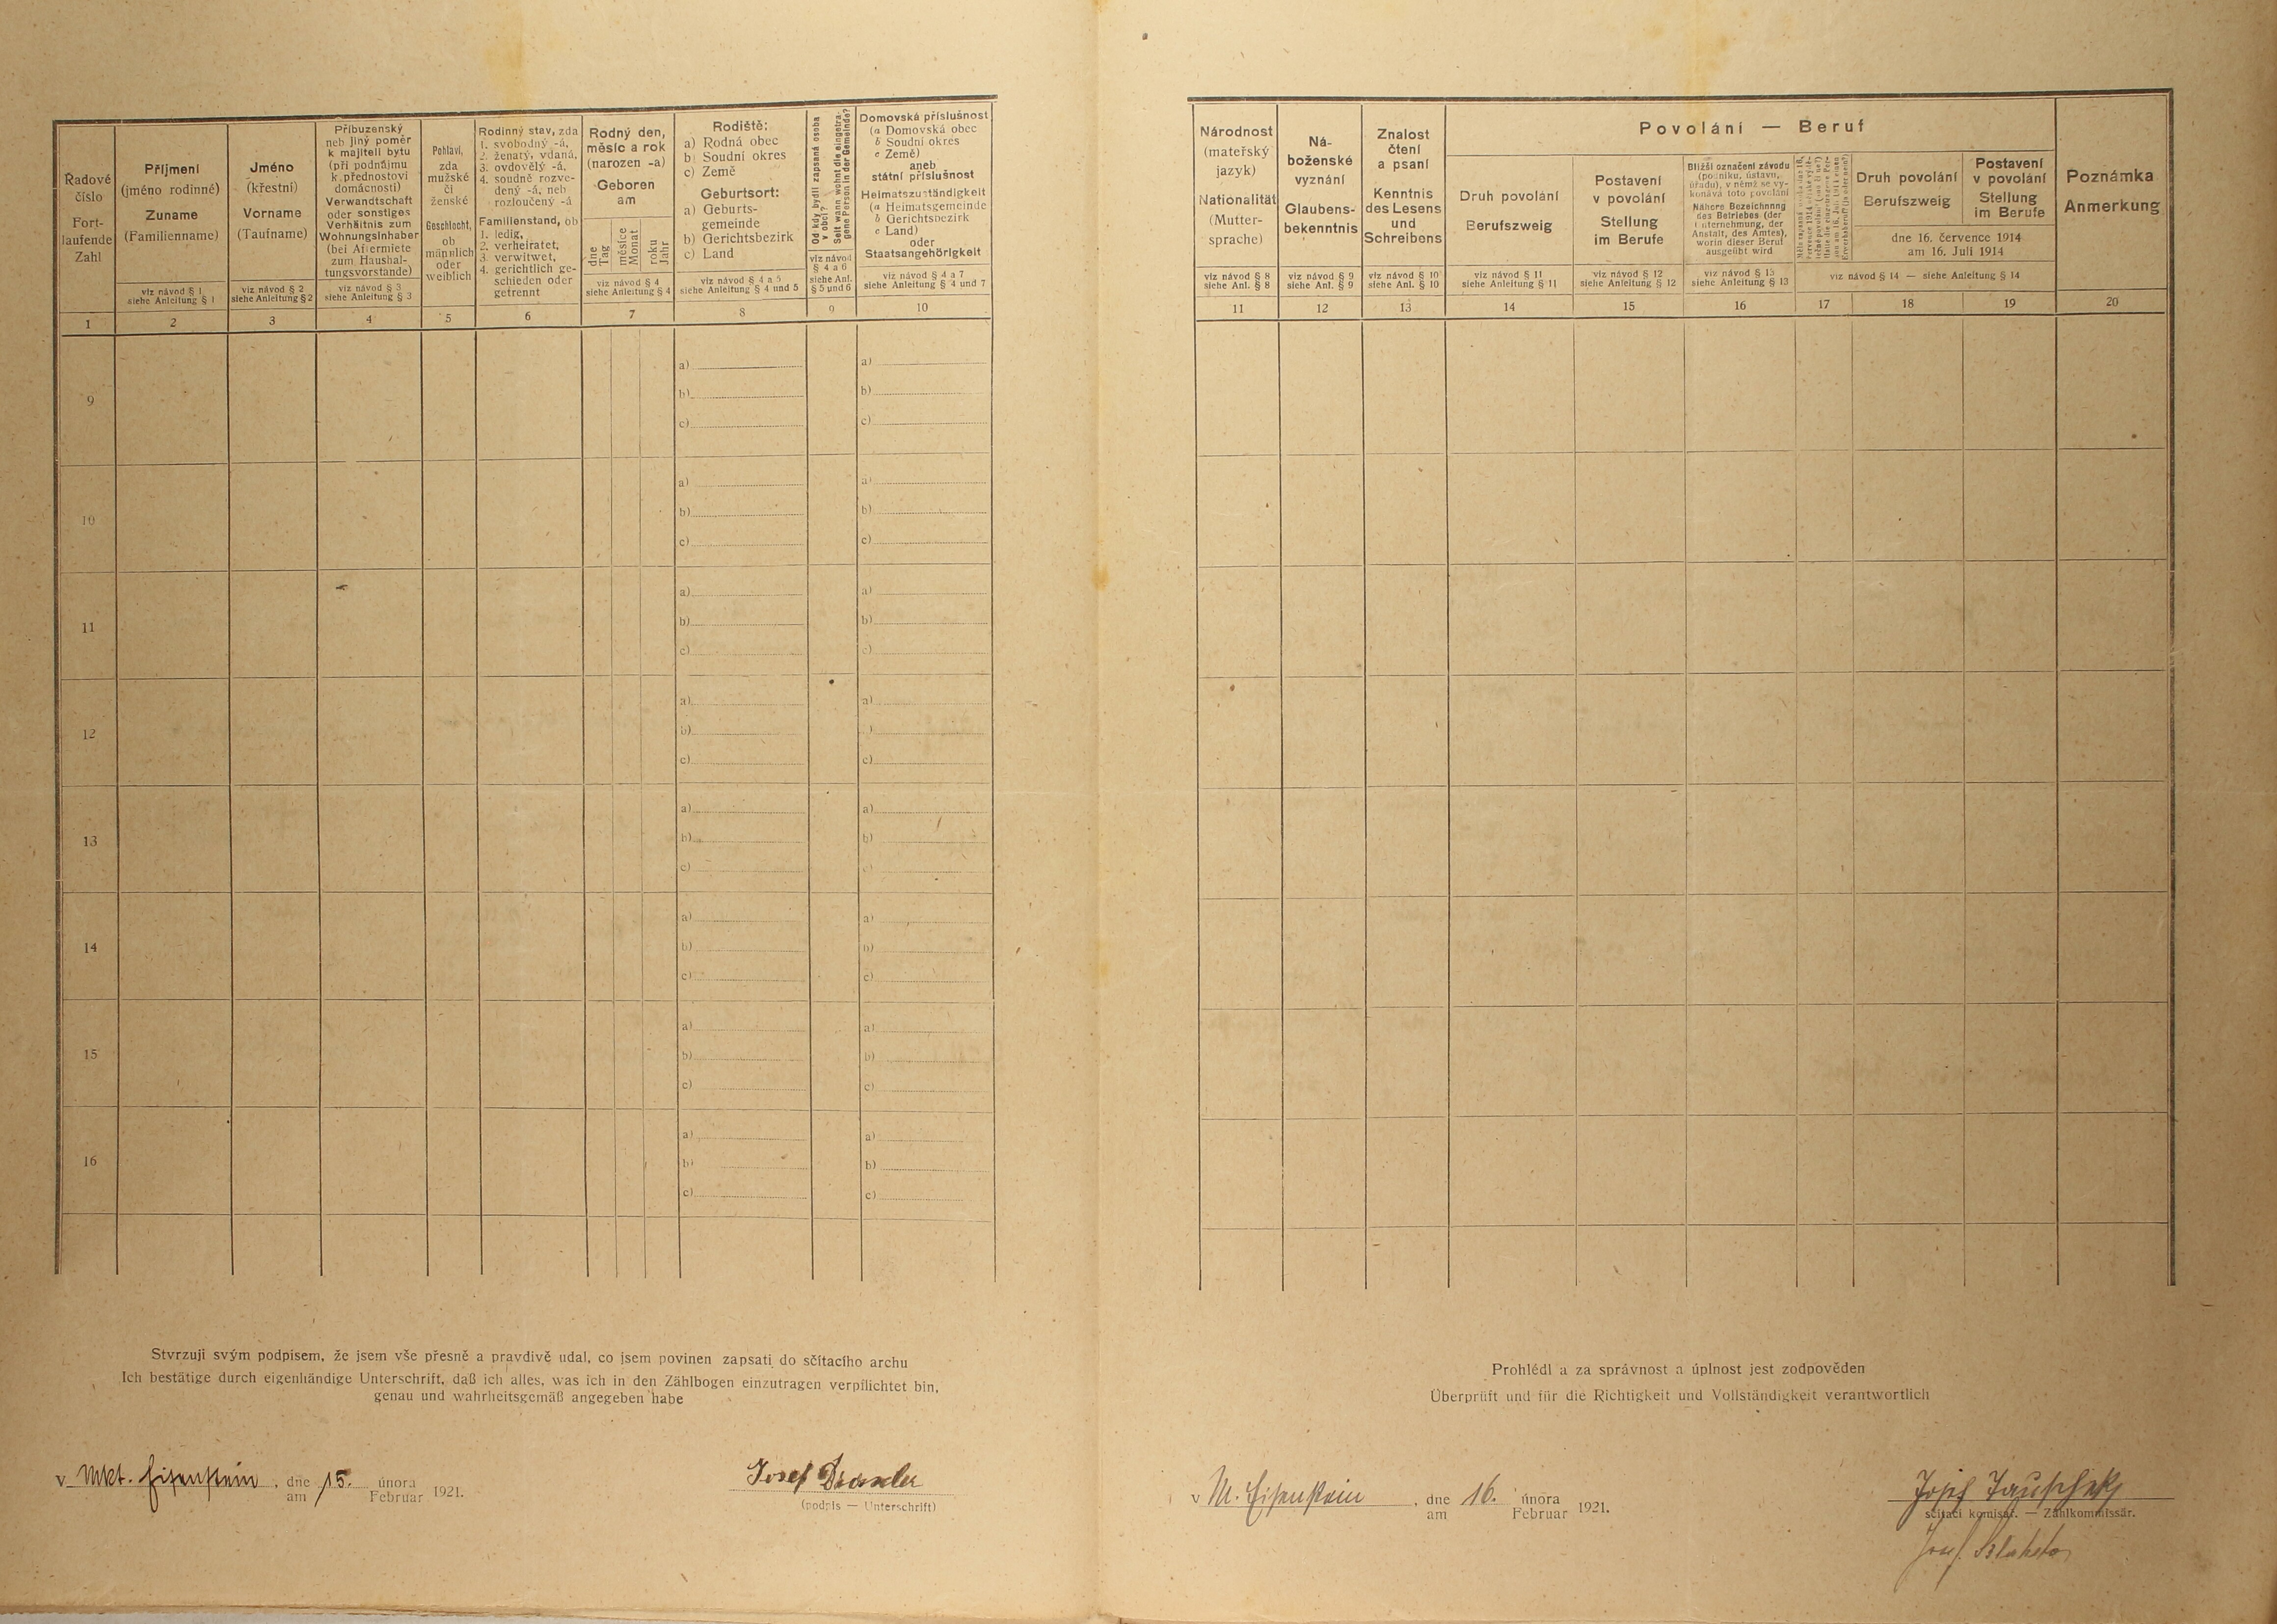 Řadové
číslo
Fort-
laufende
Zahl
1
Příjmení
(jméno rodinné)
Zuname
(Familienname)
viz návod § 1
siehe Anleitung § 1
2
Jméno
(křestní)
Vorname
(Taufname)
viz návod § 2
siehe Anleitung § 2
3
Příbuzenský
neb jiný poměr
k majiteli bytu
(při podnájmu
k přednostovi
domácnosti)
Verwandtschaft
oder sonstiges
Verhältnis zum
Wohnungsinhaber
(bei Aftermiete
zum Haushal-
tungsvorstande)
viz návod § 3
siehe Anleitung § 3
4
Pohlaví,
zda
mužské
či
ženské
Geschlecht,
ob
männlich
oder
weiblich
5
Rodinný stav, zda
1. svobodný -á,
2. ženatý, vdaná,
3. ovdovělý -á,
4. soudně rozve-
dený -á, neb
rozloučený -á
Familienstand, ob
1. ledig,
2. verheiratet,
3. verwitwet,
4. gerichtlich ge-
schieden oder
getrennt
6
Rodný den,
měsíc a rok
(narozen -a)
Geboren
am
dne
Tag
měsíce
Monat
roku
Jahr
viz návod § 4
siehe Anleitung § 4
7
Rodiště:
a) Rodná obec
b) Soudní okres
c) Země
Geburtsort:
a) Geburts-
gemeinde
b) Gerichtsbezirk
c) Land
viz návod § 4 a 5
siehe Anleitung § 4 und 5
8
Od kdy bydlí zapsaná osoba
v obci?
Seit wann wohnt die eingetra-
gene Person in der Gemeinde?
viz návod
§ 4 a 6
siehe Anl.
§ 5 und 6
9
Domovská příslušnost
(a Domovská obec
b Soudní okres
c Země)
aneb
státní příslušnost
Heimatszuständigkeit
(a Heimatsgemeinde
b Gerichtsbezirk
c Land)
oder
Staatsangehörigkeit
viz návod § 4 a 7
siehe Anleitung § 4 und 7
10
9
a) a)
b) b)
c) c)
10
a) a)
b) b)
c) c)
11
a) a)
b) b)
c) c)
12
a) a)
b) )
c) c)
13
a) a)
b) b)
c) c)
14
a) a)
b) b)
c) c)
15
a) a)
b) b)
c) c)
16
a) a)
b) b)
c) c)
Stvrzuji svým podpisem, že jsem vše přesně a pravdivě udal, co jsem povinen zapsati do sčítacího archu
Ich bestätige durch eigenhändige Unterschrift, daß ich alles, was ich in den Zählbogen einzutragen verpflichtet bin,
genau und wahrheitsgemäß angegeben habe
v Mkt. Eisenstein, dne am 15. února Februar 1921.
Josef Draxler
(podpis — Unterschrift)
Národnost
(mateřský
jazyk)
Nationalität
(Mutter-
sprache)
viz návod § 8
siehe Anl. § 8
11
Ná-
boženské
vyznání
Glaubens-
bekenntnis
viz návod § 9
siehe Anl. § 9
12
Znalost
čtení
a psaní
Kenntnis
des Lesens
und
Schreibens
viz návod § 10
siehe Anl. § 10
13
Povolání — Beruf
Druh povolání
Berufszweig
viz návod § 11
siehe Anleitung § 11
14
Postavení
v povolání
Stellung
im Berufe
viz návod § 12
siehe Anleitung § 12
15
Bližší označení závodu
(podniku, ústavu,
úřadu), v němž se vy-
konává toto povolání
Nähere Bezeichnung
des Betriebes (der
Unternehmung, der
Anstalt, des Amtes),
worin dieser Beruf
ausgeübt wird
viz návod § 13
siehe Anleitung § 13
16
17
Druh povolání
Berufszweig
Postavení
v povolání
Stellung
im Berufe
dne 16. července 1914
am 16. Juli 1914
viz návod § 14 — siehe Anleitung § 14
18
19
Poznámka
Anmerkung
20
Prohlédl a za správnost a úplnost jest zodpověden
Überprüft und für die Richtigkeit und Vollständigkeit verantwortlich
v M. Eisenstein, dne am 16. února Februar 1921.
Josef
sčítací komisař. — Zählkommissär.
Josef